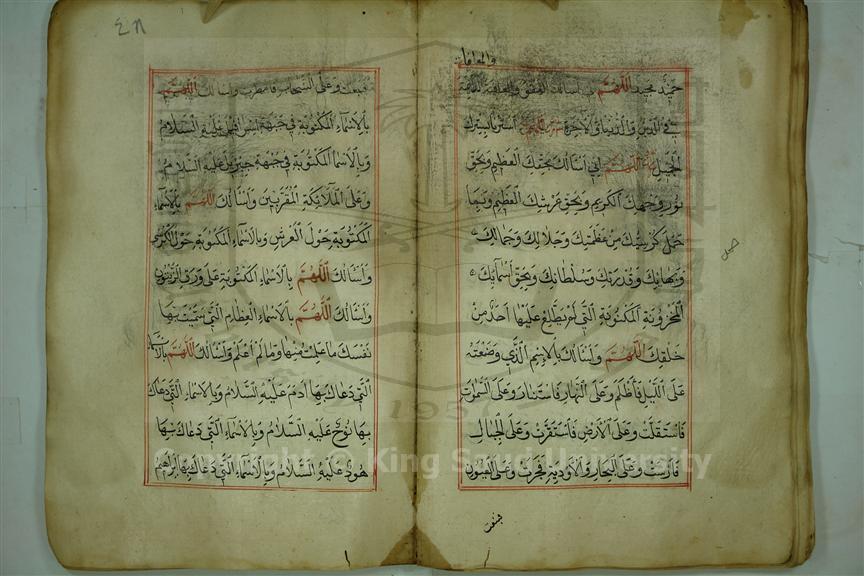 والمعافات
حميد مجيد اللهم اني اسالك العفو والعافية
في الدين والدنيا والاخرة استرنا بسترك
الجميل اللهم اني أسألك بحقك العظيم وبحق
نور وجهك الكريم وبحق عرشك العظيم وبما
حمل كرسيك من عظمتك وجلالك وجمالك
وبهائك وقدرتك وسلطانك وبحق أسمائك
المخزونة المكنونة التي لم يطلع عليها أحد من
خلقك اللهم وأسألك بالإسم الذي وضعته
على الليل فأظلم وعلى النهار فاستنار وعلى السموات
فاستقلت وعلى الأرض فاستقرت وعلى الجبال
فارست وعلى البحار والأودية فجرت وعلى العيون
فنبعت
٤٨
فنبعت وعلى السحاب فامطرت وأسألك اللهم
بالأسماء المكتوبة في جبهة اسرافيل عليه السلام
وبالأسماء المكتوبة في جبهة جبريل عليه السلام
وعلى الملائكة المقربين وأسألك اللهم بالأسماء
المكتوبة حول العرش وبالأسماء المكتوبة حول الكرسي
وأسألك اللهم بالأسماء المكتوبة على ورق الزيتون
وأسألك اللهم بالأسماء العظام التي سميت بها
نفسك ما علمت منها وما لم أعلم وأسألك اللهم بالأسماء
التي دعاك بها آدم عليه السلام وبالأسماء التي دعاك
بها نوح عليه السلام وبالأسماء التي دعاك بها
هود عليه السلام وبالأسماء التي دعاك بها إبراهيم
1957
Copyright © King Saud University